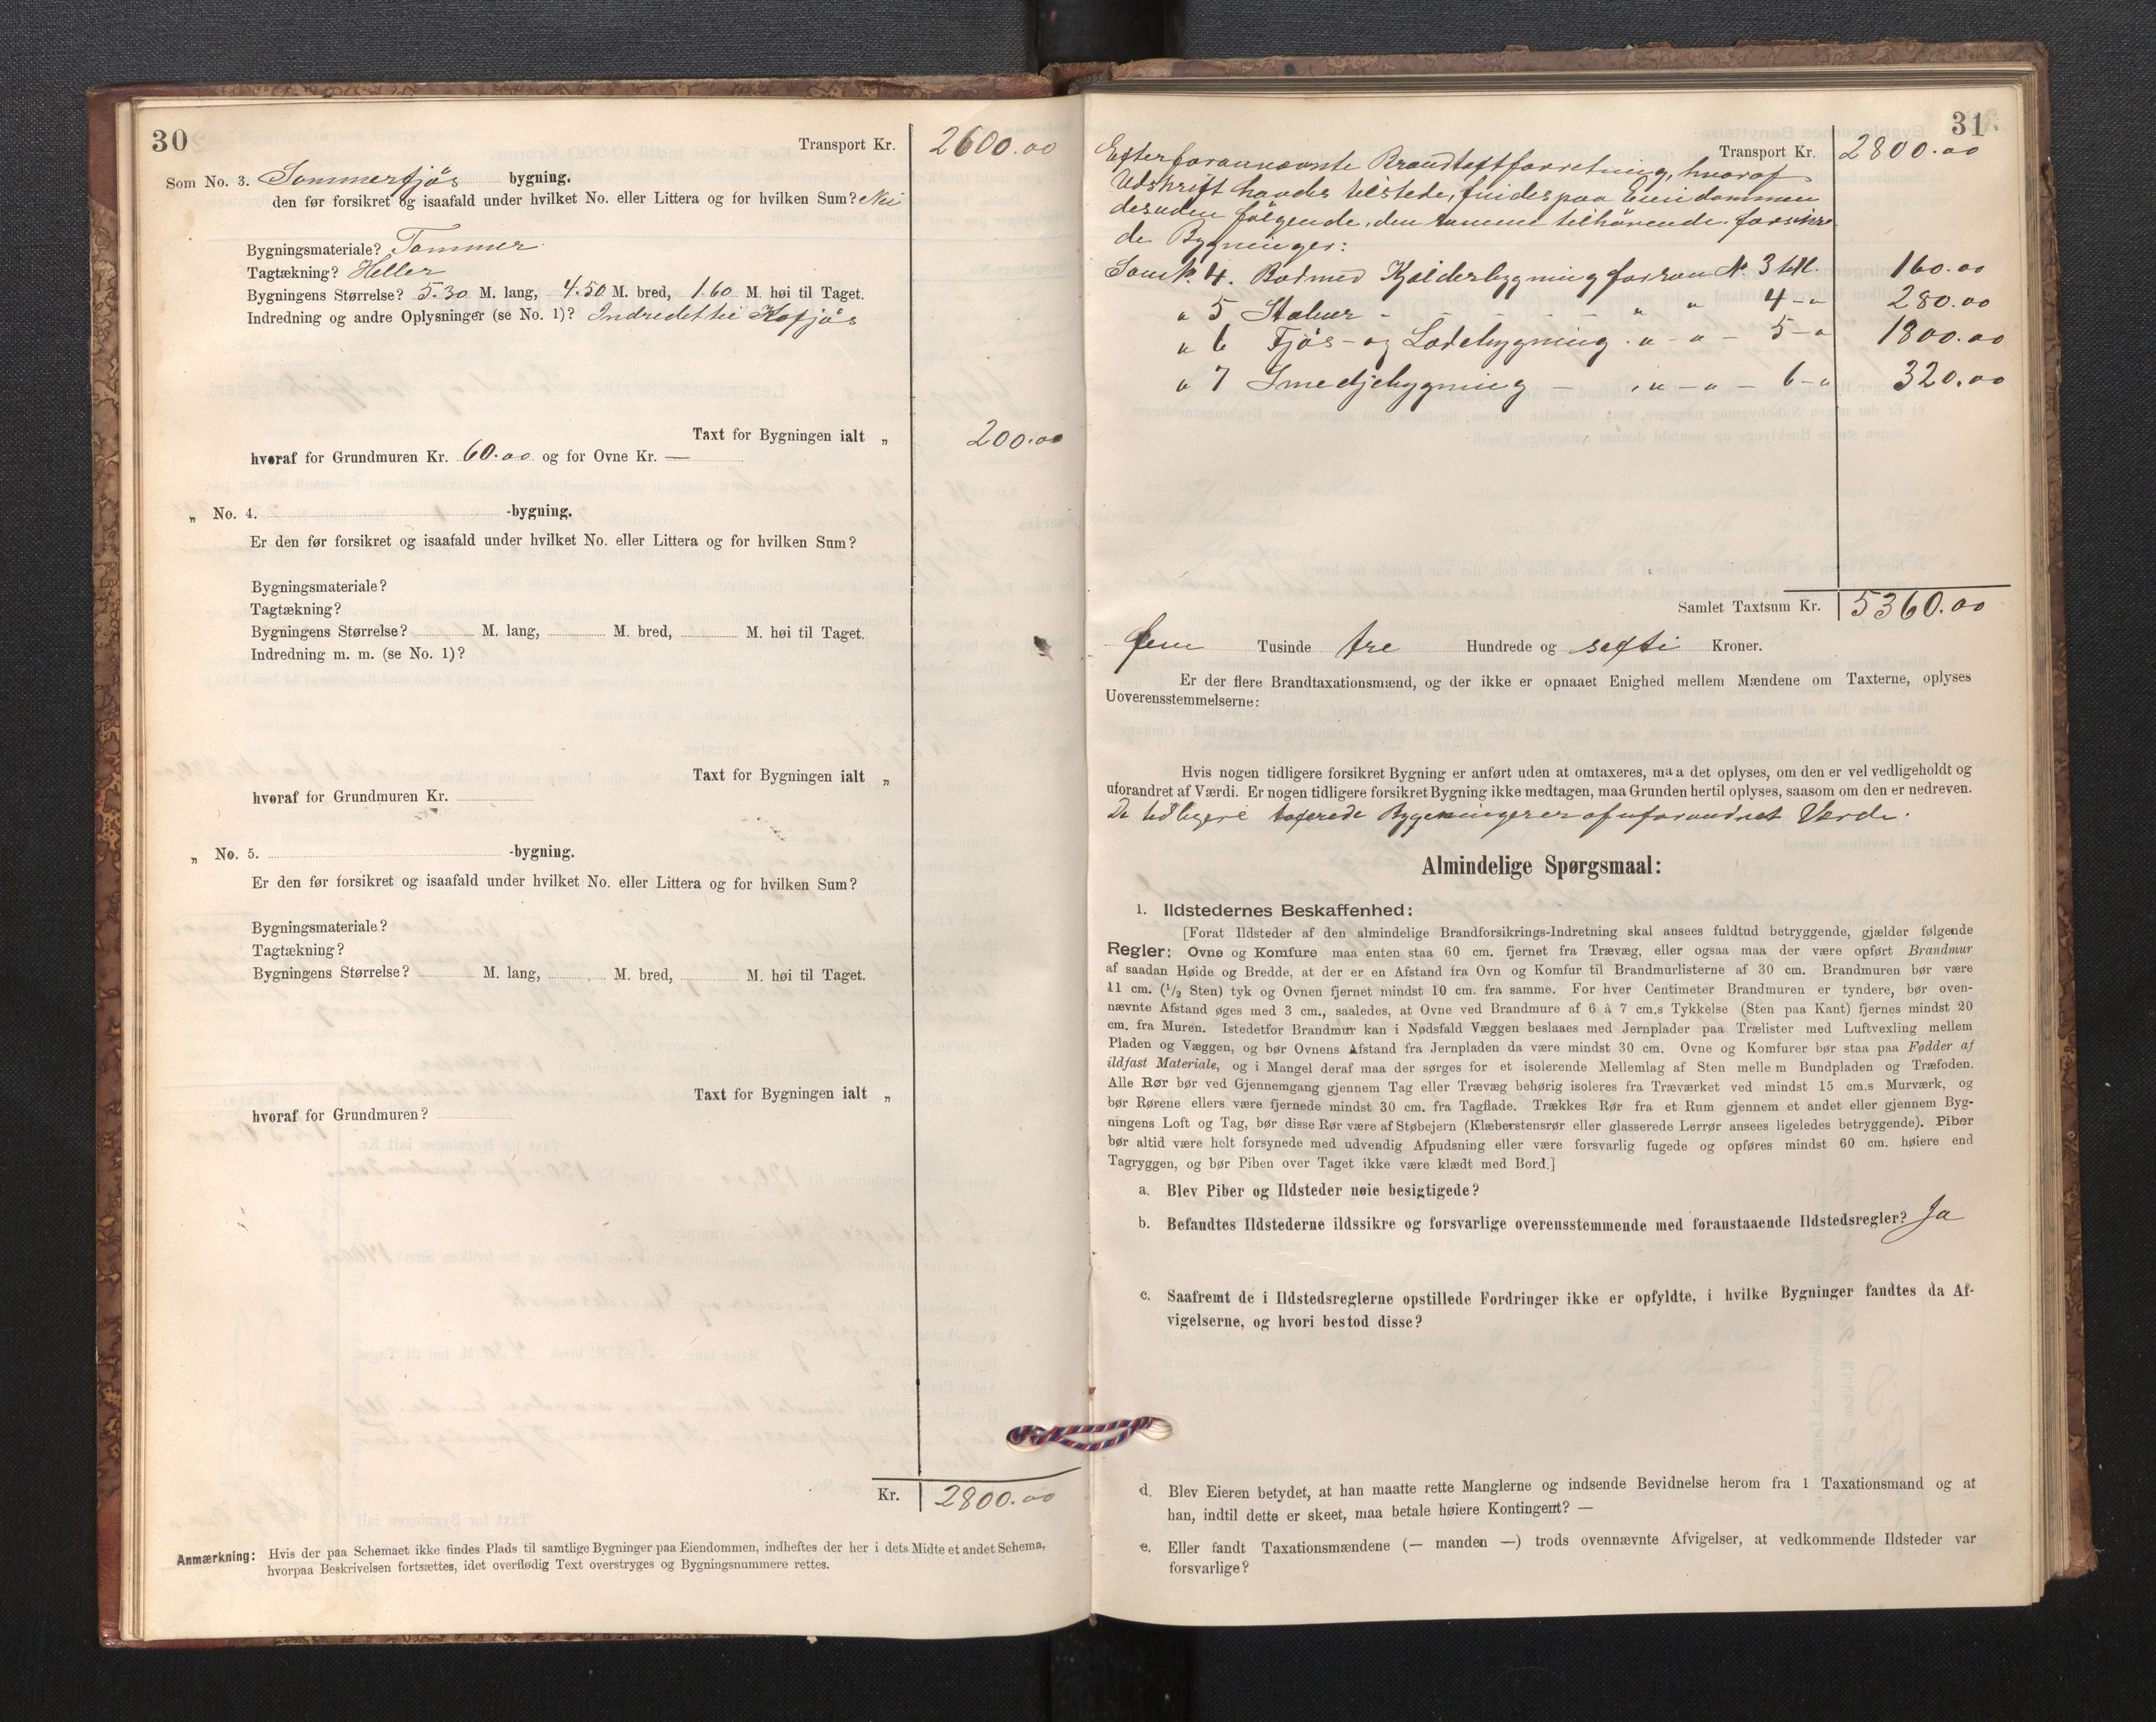 30
Transport Kr. 2600.00
Som No. 3. Sommerfjøs bygning.
den før forsikret og isaafald under hvilket No. eller Littera og for hvilken Sum? Nei
Bygningsmateriale? Tømmer
Tagtækning? Heller
Bygningens Størrelse? 5.30 M. lang, 4.50 M. bred, 1.60 M. høi til Taget.
Indredning og andre Oplysninger (se No. 1)? Indredet til
Taxt for Bygningen ialt „ 200.00
hvoraf for Grundmuren Kr. 60.00 og for Ovne Kr. —
„ No. 4. -bygning.
Er den før forsikret og isaafald under hvilket No. eller Littera og for hvilken Sum?
Bygningsmateriale?
Tagtækning?
Bygningens Størrelse? M. lang, M. bred, M. høi til Taget.
Indredning m. m. (se No. 1)?
Taxt for Bygningen ialt „
hvoraf for Grundmuren Kr.
„ No. 5. -bygning.
Er den før forsikret og isaafald under hvilket No. eller Littera og for hvilken Sum?
Bygningsmateriale?
Tagtækning?
Bygningens Størrelse? M. lang, M. bred, M. høi til Taget.
Taxt for Bygningen ialt „
hvoraf for Grundmuren?
Kr. 2800.00
Anmærkning: Hvis der paa Schemaet ikke findes Plads til samtlige Bygninger paa Eiendommen, indheftes der her i dets Midte et andet Schema,
hvorpaa Beskrivelsen fortsættes, idet overflødig Text overstryges og Bygningsnummere rettes.
31
Transport Kr. 2800.00
Efter forannævnte Brandtaxtforretning, hvoraf
Udskrift havdes tilstede, findes paa Eiendommen
desuden følgende, den samme tilhørende forsikre
de Bygninger:
Som No. 4. Bod med Kjælderbygning forson No. 3 160.00
" 5 " " 4 - " 280.00
" 6 Fjøs- og Ladebygning " - " - 5 - " 1800.00
" 7 Smedjebygning — " - " - 6 - " 320.00
Samlet Taxtsum Kr. 5360.00
fem Tusinde tre Hundrede og sexti Kroner.
Er der flere Brandtaxationsmænd, og der ikke er opnaaet Enighed mellem Mændene om Taxterne, oplyses
Uoverensstemmelserne:
Hvis nogen tidligere forsikret Bygning er anført uden at omtaxeres, maa det oplyses, om den er vel vedligeholdt og
uforandret af Værdi. Er nogen tidligere forsikret Bygning ikke medtagen, maa Grunden hertil oplyses, saasom om den er nedreven.
De tidligere taxerede Bygninger er af uforandret Værdi.
Almindelige Spørgsmaal:
1. Ildstedernes Beskaffenhed:
[Forat Ildsteder af den almindelige Brandforsikrings-Indretning skal ansees fuldtud betryggende, gjælder følgende
Regler: Ovne og Komfure maa enten staa 60 cm. fjernet fra Trævæg, eller ogsaa maa der være opført Brandmur
af saadan Høide og Bredde, at der er en Afstand fra Ovn og Komfur til Brandmurlisterne af 30 cm. Brandmuren bør være
11 cm. (1/2 Sten) tyk og Ovnen fjernet mindst 10 cm. fra samme. For hver Centimeter Brandmuren er tyndere, bør oven-
nævnte Afstand øges med 3 cm., saaledes, at Ovne ved Brandmure af 6 à 7 cm.s Tykkelse (Sten paa Kant) fjernes mindst 20
cm. fra Muren. Istedetfor Brandmur kan i Nødsfald Væggen beslaaes med Jernplader paa Trælister med Luftvexling mellem
Pladen og Væggen, og bør Ovnens Afstand fra Jernpladen da være mindst 30 cm. Ovne og Komfurer bør staa paa Fødder af
ildfast Materiale, og i Mangel deraf maa der sørges for et isolerende Mellemlag af Sten mellem Bundpladen og Træfoden.
Alle Rør bør ved Gjennemgang gjennem Tag eller Trævæg behørig isoleres fra Træværket ved mindst 15 cm.s Murværk, og
bør Rørene ellers være fjernede mindst 30 cm. fra Tagflade. Trækkes Rør fra et Rum gjennem et andet eller gjennem Byg-
ningens Loft og Tag, bør disse Rør være af Støbejern (Klæberstensrør eller glasserede Lerrør ansees ligeledes betryggende). Piber
bør altid være helt forsynede med udvendig Afpudsning eller være forsvarlig fugede og opføres mindst 60 cm. høiere end
Tagryggen, og bør Piben over Taget ikke være klædt med Bord.]
a. Blev Piber og Ildsteder nøie besigtigede?
b. Befandtes Ildstederne ildssikre og forsvarlige overensstemmende med foranstaaende Ildstedsregler? Ja
c. Saafremt de i Ildstedsreglerne opstillede Fordringer ikke er opfyldte, i hvilke Bygninger fandtes da Af-
vigelserne, og hvori bestod disse?
d. Blev Eieren betydet, at han maatte rette Manglerne og indsende Bevidnelse herom fra 1 Taxationsmand og at
han, indtil dette er skeet, maa betale høiere Kontingent? —
e. Eller fandt Taxationsmændene (— manden —) trods ovennævnte Afvigelser, at vedkommende Ildsteder var
forsvarlige?